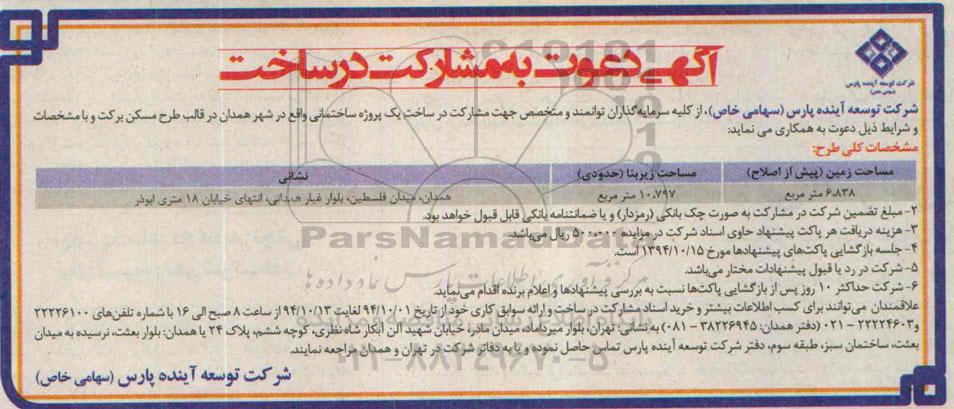 آگهی دعوت به مشارکت در ساخت
شرکت توسعه آینده پارس
(سهامی خاص)
شرکت توسعه آینده پارس (سهامی خاص)، از کلیه سرمایه‌گذاران توانمند و متخصص جهت مشارکت در ساخت یک پروژه ساختمانی واقع در شهر همدان در قالب طرح مسکن برکت و با مشخصات
و شرایط ذیل دعوت به همکاری می نماید:
مشخصات کلی طرح:
مساحت زمین (پیش از اصلاح) مساحت زیربنا (حدودی) نشانی
۶.۸۳۸ متر مربع ۱۰.۷۹۷ متر مربع همدان، میدان فلسطین، بلوار غبار همدانی، انتهای خیابان ۱۸ متری ابوذر
۲- مبلغ تضمین شرکت در مشارکت به صورت چک بانکی (رمزدار) و یا ضمانتنامه بانکی قابل قبول خواهد بود.
۳- هزینه دریافت هر پاکت پیشنهاد حاوی اسناد شرکت در مزایده ۵۰۰.۰۰۰ ریال می‌باشد.
۴- جلسه بازگشایی پاکت‌های پیشنهادها مورخ ۱۳۹۴/۱۰/۱۵ است.
۵- شرکت در رد یا قبول پیشنهادات مختار می‌باشد.
۶- شرکت حداکثر ۱۰ روز پس از بازگشایی پاکت‌ها نسبت به بررسی پیشنهادها و اعلام برنده اقدام می‌نماید.
علاقمندان می‌توانند برای کسب اطلاعات بیشتر و خرید اسناد مشارکت در ساخت و ارائه سوابق کاری خود از تاریخ ۹۴/۱۰/۰۱ لغایت ۹۴/۱۰/۱۳ از ساعت ۸ صبح الی ۱۶ با شماره تلفن‌های ۲۲۲۲۶۱۰۰
و ۲۲۲۲۴۶۰۳ - ۰۲۱ (دفتر همدان: ۳۸۲۲۶۹۴۵ - ۰۸۱) به نشانی: تهران، بلوار میرداماد، میدان مادر، خیابان شهید آلن آبکار شاه نظری، کوچه ششم، پلاک ۲۴ یا همدان: بلوار بعثت، نرسیده به میدان
بعثت، ساختمان سبز، طبقه سوم، دفتر شرکت توسعه آینده پارس تماس حاصل نموده و یا به دفاتر شرکت در تهران و همدان مراجعه نمایند.
شرکت توسعه آینده پارس (سهامی خاص)
ParsNamadData
۰۲۱-۸۸۳۴۹۶۷۰-۵